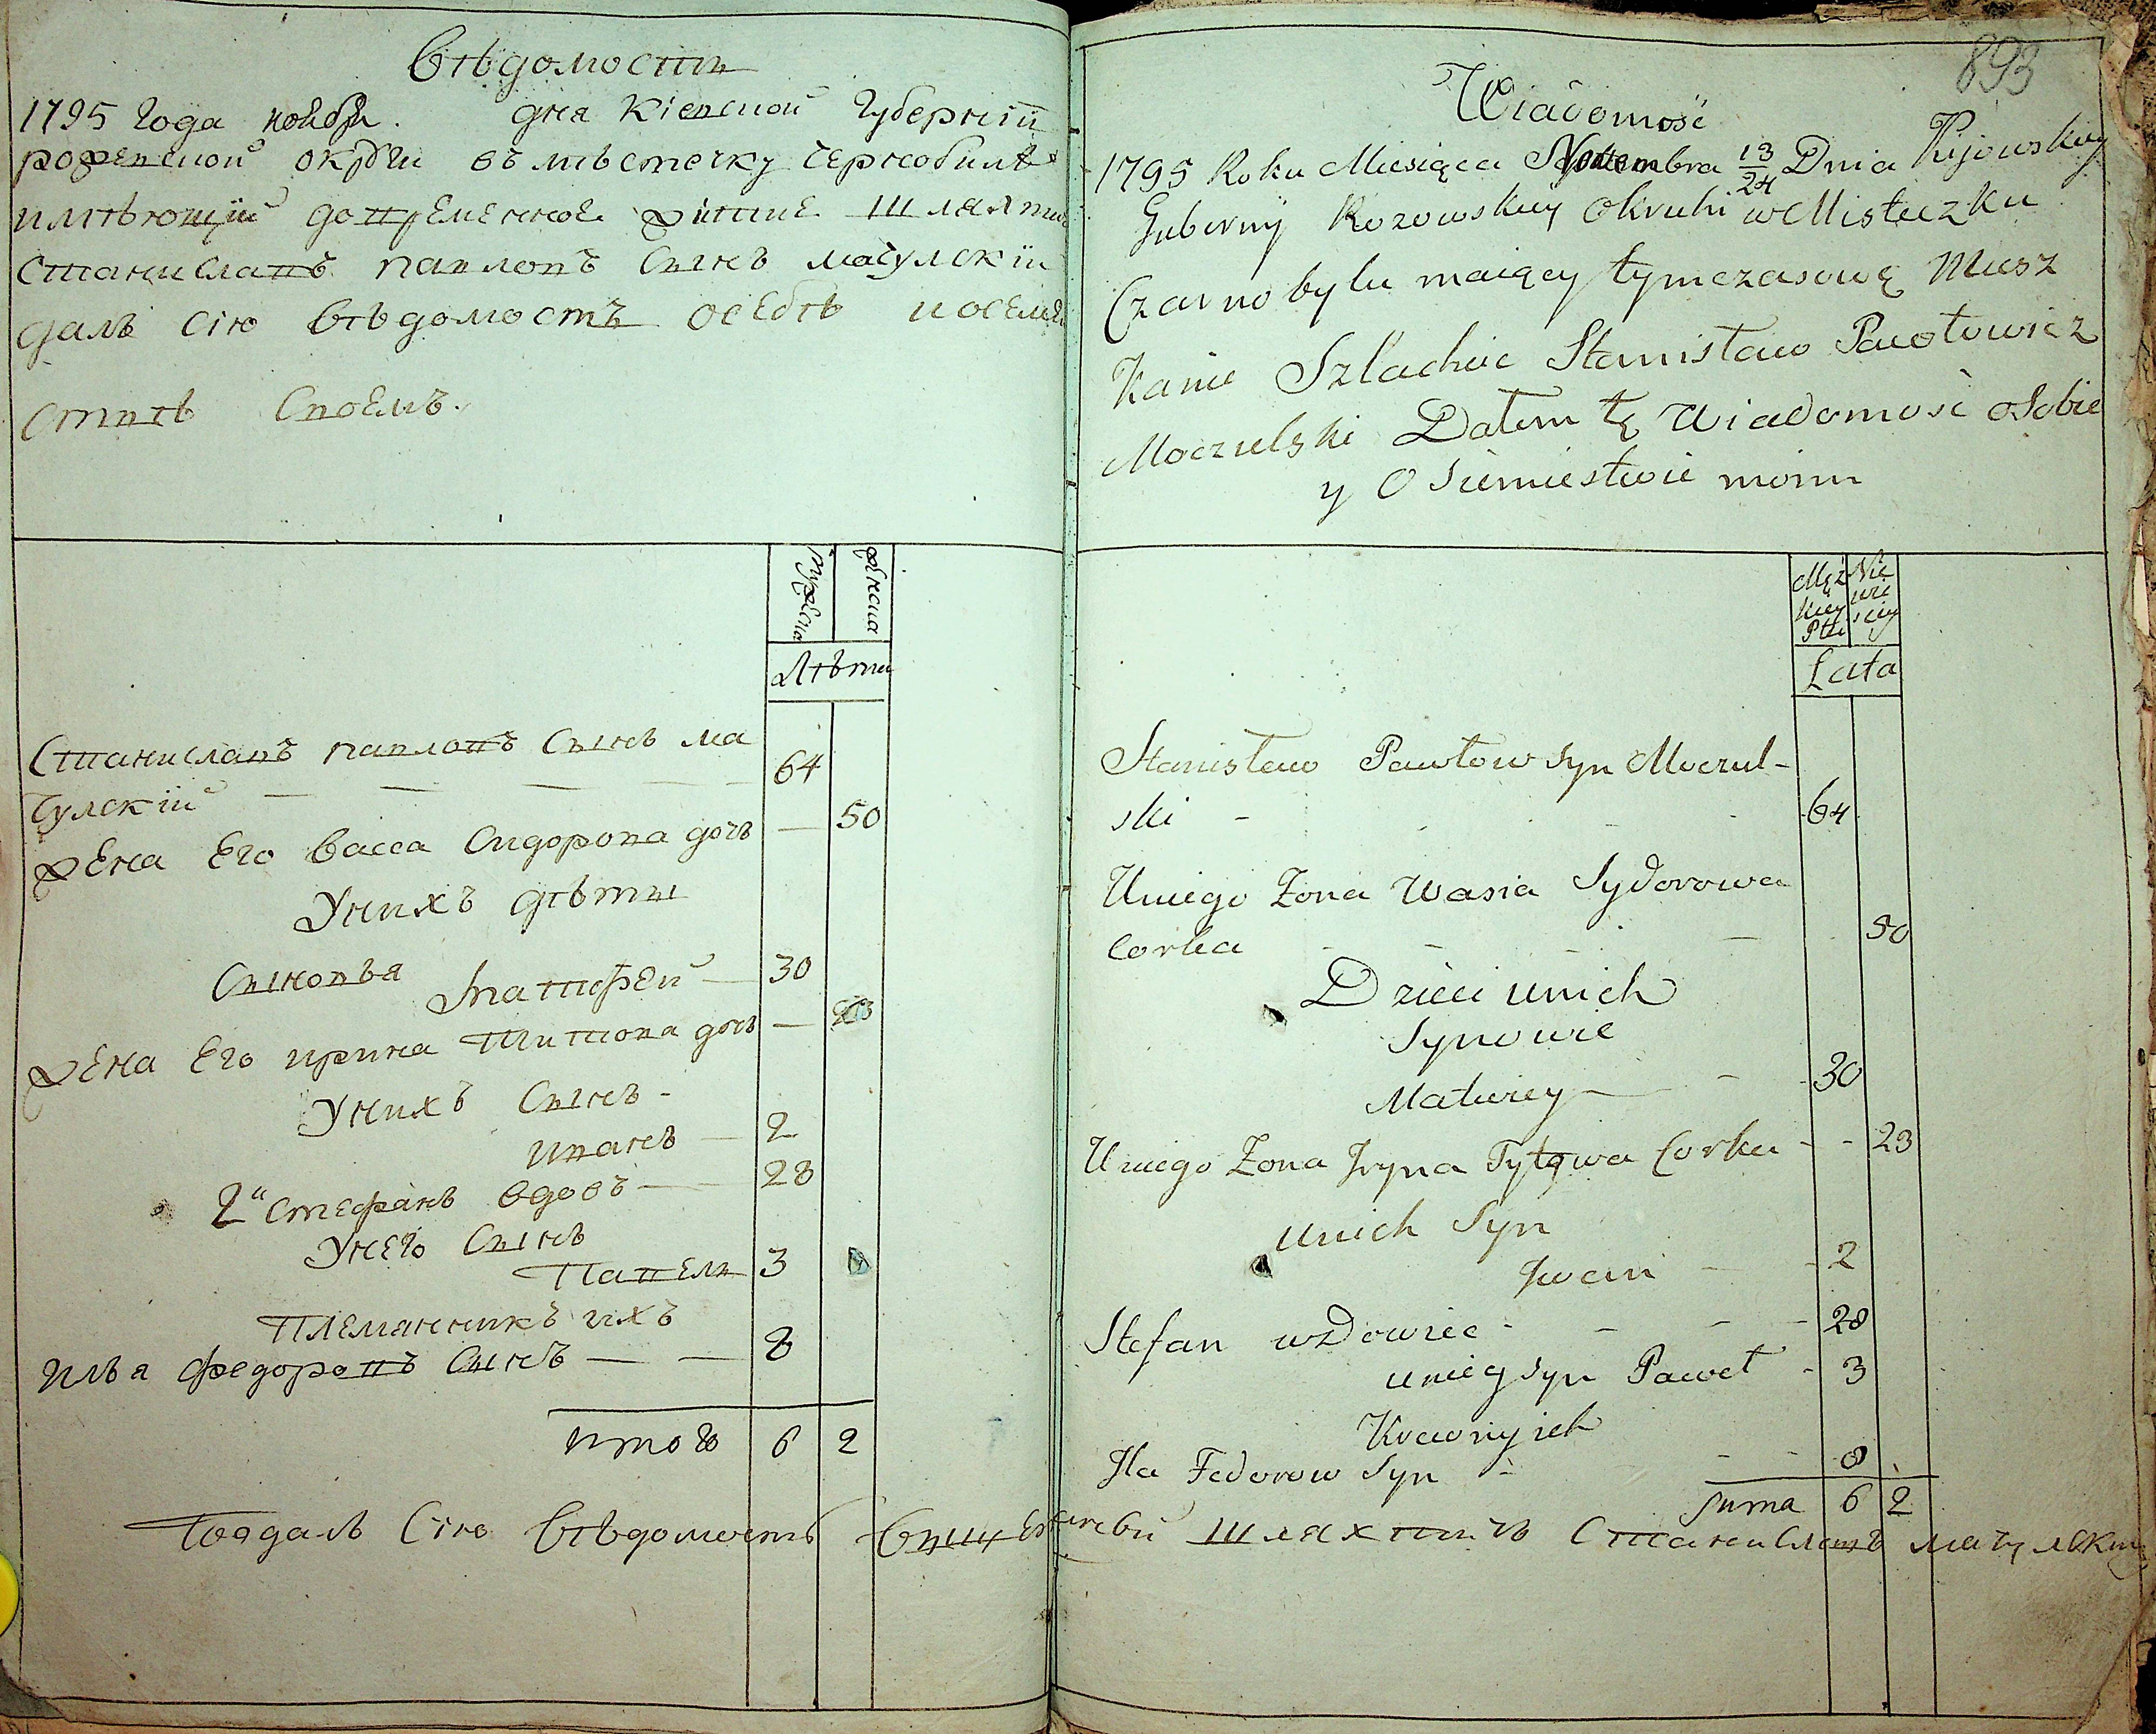 Вѣдомость
1795 Года ноября. дня Кіевской Губерніи
рожевской округи въ мѣстечку Чернобилѣ
имѣющій довременное житие Шляхтич
Станиславъ Павловъ Сынъ мачулскій
далъ сію Вѣдомость осебѣ и осемей
ствѣ Своемъ.
мужеска женска
Лѣты
Станиславъ павловъ Сынъ ма
чулскій — — — — 64
жена Его Васса Сидорова дочь — 50
Унихъ дѣты
Сыновья Матфей — 30
жена Его ирина Титова дочь — 23
Унихъ Сынъ -
иванъ — 2
2й Стефанъ вдовъ — 28
Унего Сынъ
Павелъ 3
Племянникъ ихъ
илья федоровъ Сынъ — — 8
итого 6 2
Подалъ Сию Вѣдомость Шляхтичъ Станиславъ мачулский
893
Wiadomość
1795 Roku Miesiąca Novembra 13/24 Dnia Kijowskiey
Gubernij Rozowskiey Okruhi w Misteczku
Czarnobylu maiący tymczasowę Miesz
kanie Szlachcic Stanisław Pawłowicz
Moczulski Dałem tę Wiadomość osobie
y O Siemiestwie moim
Męż Nie
kiey wie
Płci sciey
Lata
Stanisław Pawłow syn Moczul-
ski - 64
Uniego Żona Wasia Sydorowa
Corka - - - - 50
Dzieci unich
Synowie
Matwiey — - 30
Uniego Żona Jryna Tytowa Corka - - 23
Unich Syn
Jwan - - 2
Stefan wdowiec - - - - 28
unieg syn Paweł - 3
Krewny ich
Jla Fedorow Syn - - - 8
Suma 6 2